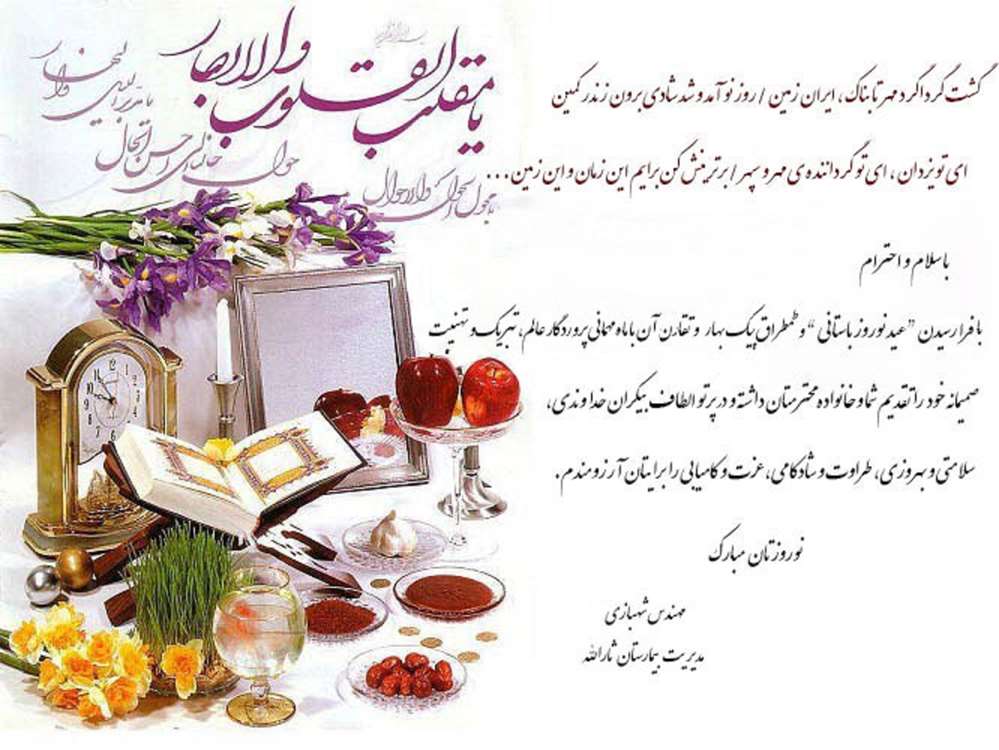 بسم الله الرحمن الرحیم
یا مقلب القلوب والابصار
یا مدبر اللیل والنهار
یا محول الحول والاحوال
حول حالنا الی احسن الحال
گشت گرداگرد مهر تابناک، ایران زمین / روز نو آمد و شد شادی برون زندر کمین
ای تو یزدان، ای تو گرداننده ی مهر و سپهر / برترینش کن برایم این زمان و این زمین...
با سلام و احترام
با فرا رسیدن "عید نوروز باستانی" و طمطراق پیک بهار و تقارن آن با ماه مهمانی پروردگار عالم، تبریک و تهنیت
صمیمانه خود را تقدیم شما و خانواده محترمتان داشته و در پرتو الطاف بیکران خداوندی،
سلامتی و بهروزی، طراوت و شادکامی، عزت و کامیابی را برایتان آرزومندم.
نوروزتان مبارک
مهندس شهبازی
مدیریت بیمارستان ثارالله